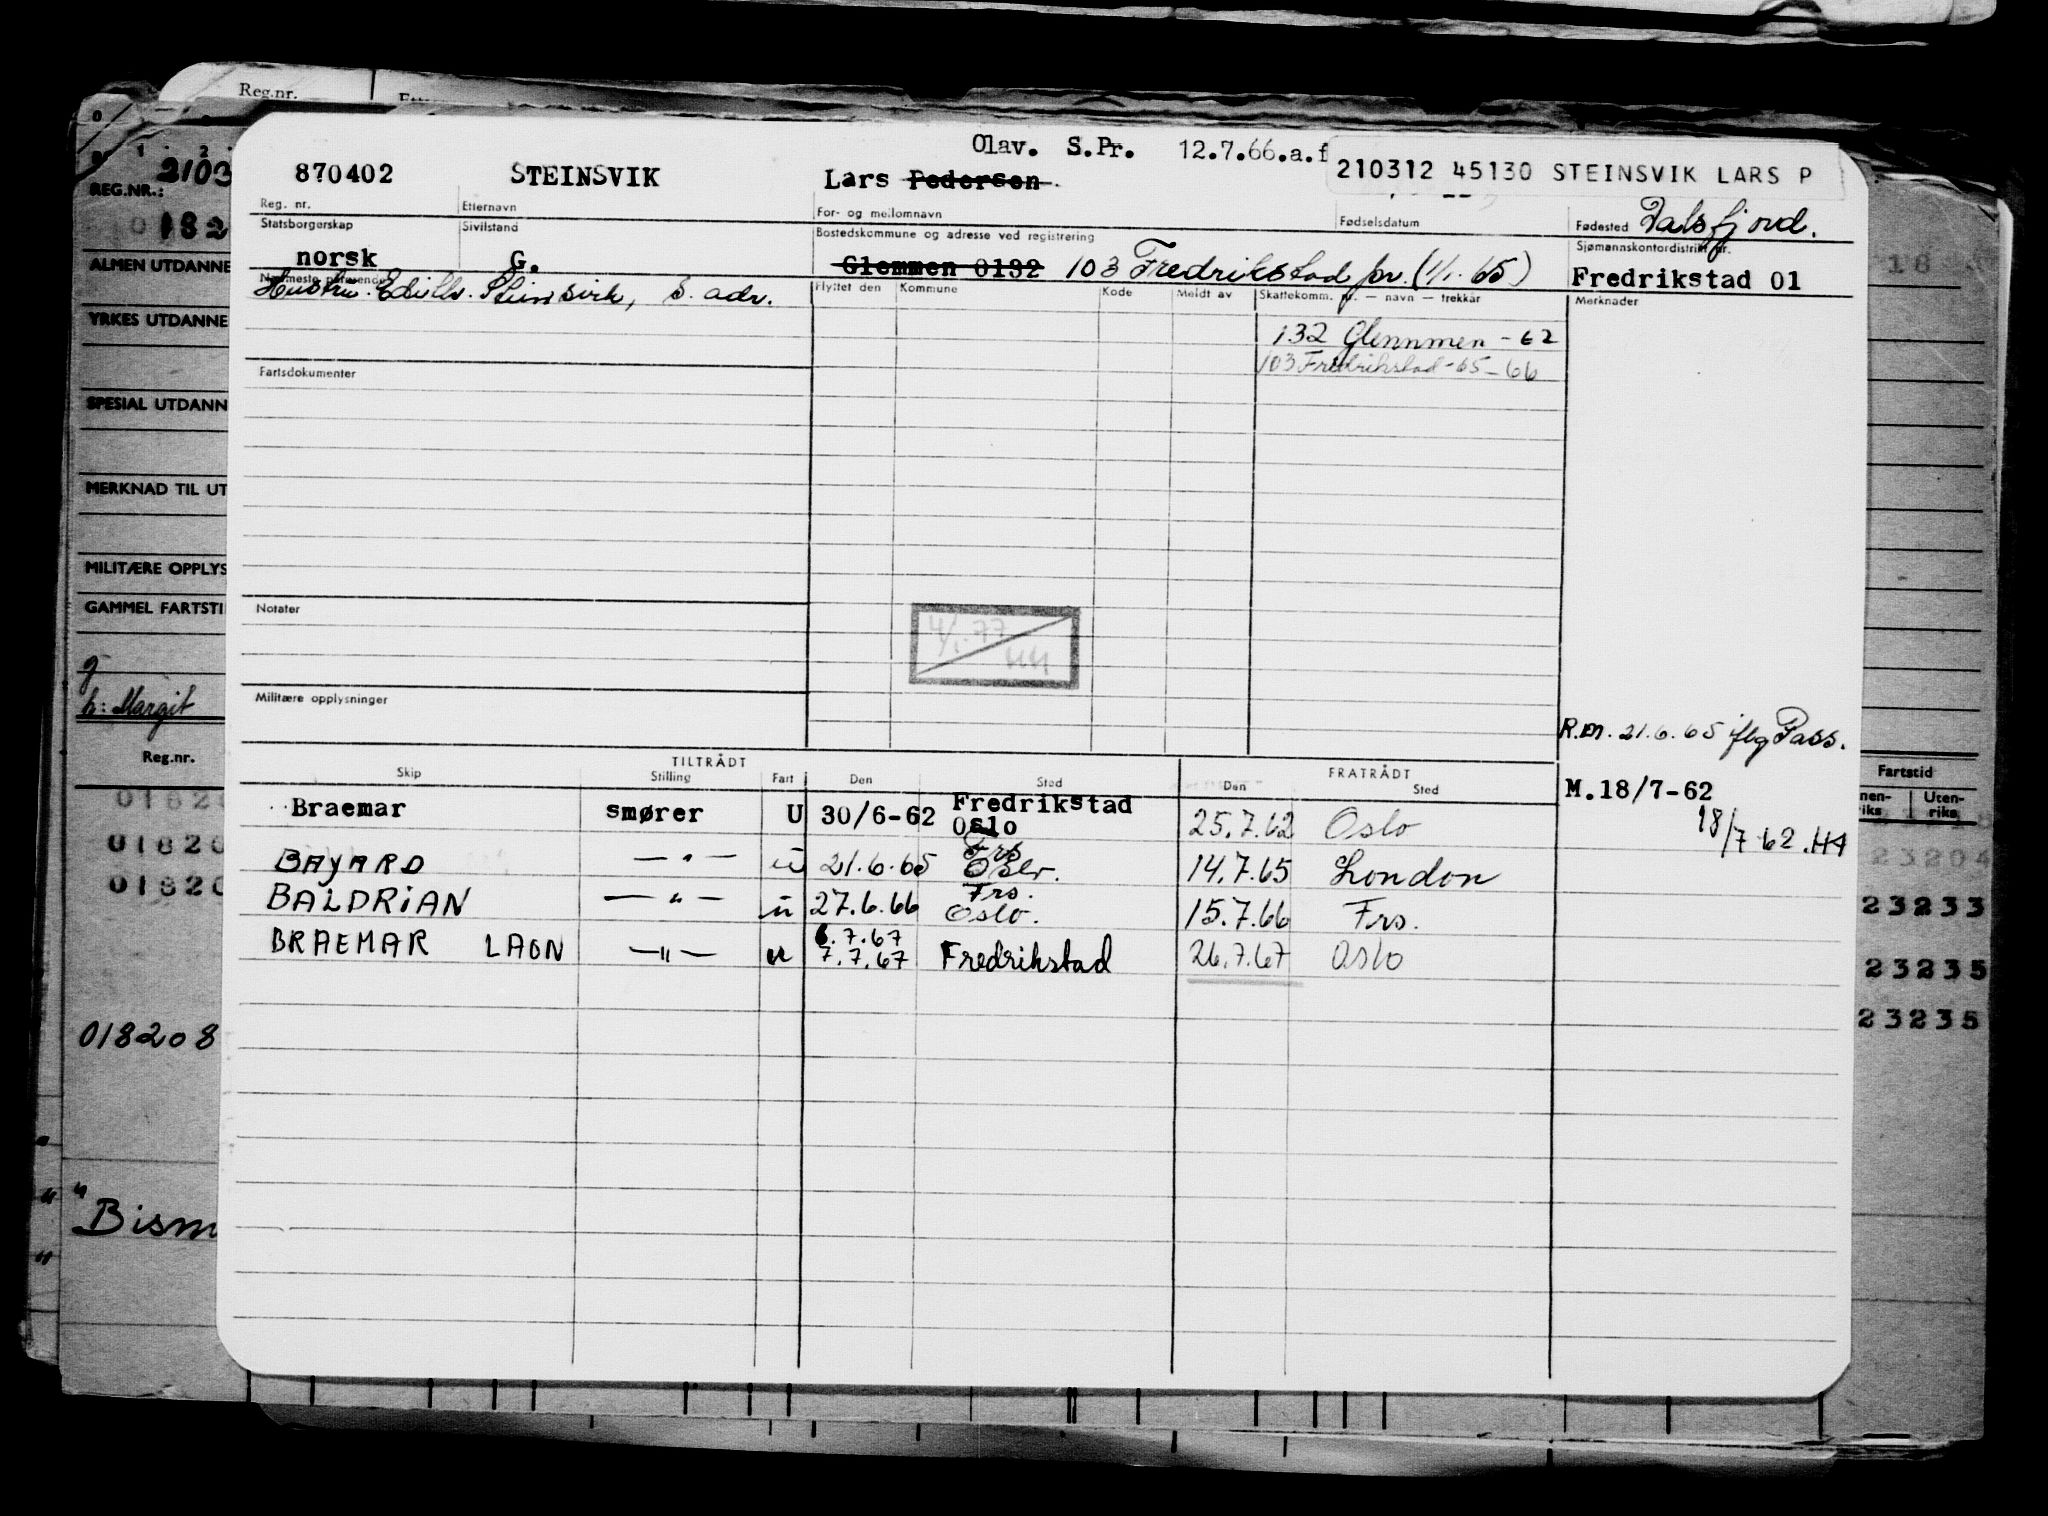 Reg.nr.
Olav. S.Pr. 12.7.66.a.f
870402 STEINSVIK Lars Pedersen 210312 45130 STEINSVIK LARS P
Reg. nr. Etternavn For- og mellomnavn Fødselsdatum Fødested Dalsfjord.
Statsborgerskap Sivilstand Bostedskommune og adresse ved registrering Sjømannskontordistrikt nr.
norsk G. Glemmen 0132 103 Fredrikstad pr. (1/1-65) Fredrikstad 01
Nærmeste pårørende
Hustru: Edith Steinsvik, s. adr.
Flyttet den Kommune Kode Meldt av Skattekomm. nr. — navn — trekkår Merknader
132 Glemmen - 62
103 Fredrikstad - 65 - 66
Fartsdokumenter
Notater
4/1-77
HH
Militære opplysninger
R.m. 21.6.65 iflg Pass.
TILTRÅDT FRATRÅDT
Skip Stilling Fart Den Sted Den Sted
M.18/7-62
18/7 62. HH
Braemar smører U 30/6-62 Fredrikstad Oslo 25.7.62 Oslo
BAYARD — " — u 21.6.65 Frs Oslo. 14.7.65 London
BALDRIAN — " — u 27.6.66 Frs. Oslo. 15.7.66 Frs.
BRAEMAR LAON — " — u 6.7.67 7.7.67 Fredrikstad 26.7.67 Oslo
2103
REG.NR.:
0182
ALMEN UTDANNE
YRKES UTDANNE
SPESIAL UTDANN
MERKNAD TIL UT
MILITÆRE OPPLYS
GAMMEL FARTSTI
g
h: Margit
Reg.nr.
01820
01820
01820
018208
"Bism
"
Fartstid
nen-riks Uten-riks
23204
23233
23235
23235